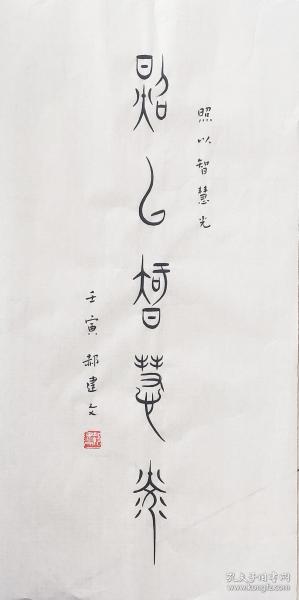 照以智慧光
照以智慧光
壬寅 郝建文
孔夫子旧书网
www.kongfz.com